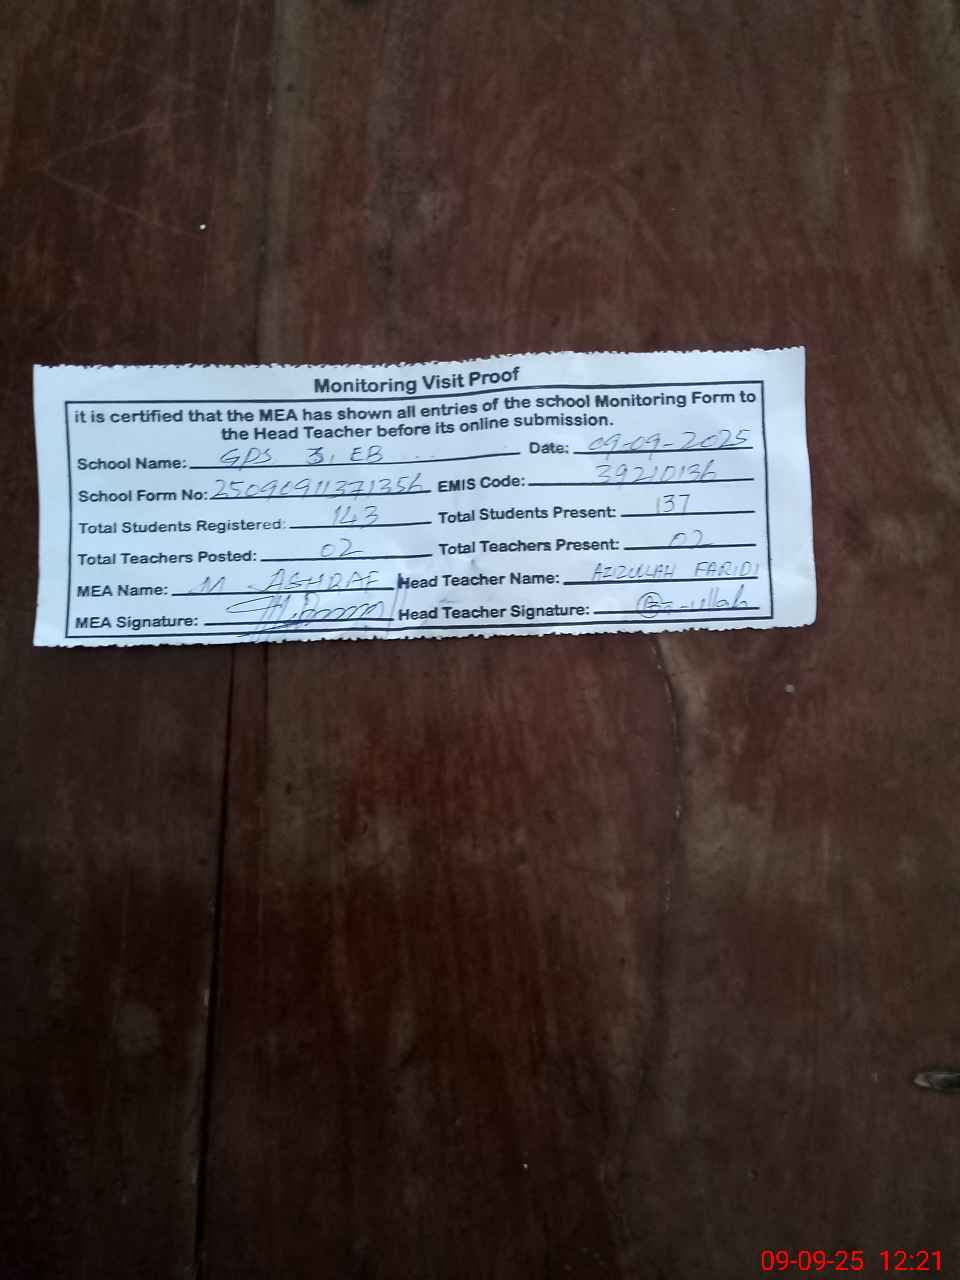 Monitoring Visit Proof
it is certified that the MEA has shown all entries of the school Monitoring Form to
the Head Teacher before its online submission.
School Name: GPS 3, EB Date: 09-09-2025
School Form No: 25090911371356 EMIS Code: 39210136
Total Students Registered: 143 Total Students Present: 137
Total Teachers Posted: 02 Total Teachers Present: 02
MEA Name: M ASHRAF Head Teacher Name: AZIZULLAH FARIDI
MEA Signature: Head Teacher Signature:
09-09-25 12:21